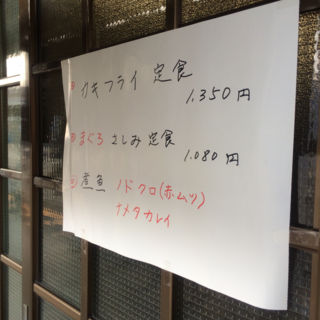 カキフライ 定食
1,350円
まぐろ さしみ 定食
1.080円
煮魚 ノドクロ(赤ムツ)
ナメタカレイ